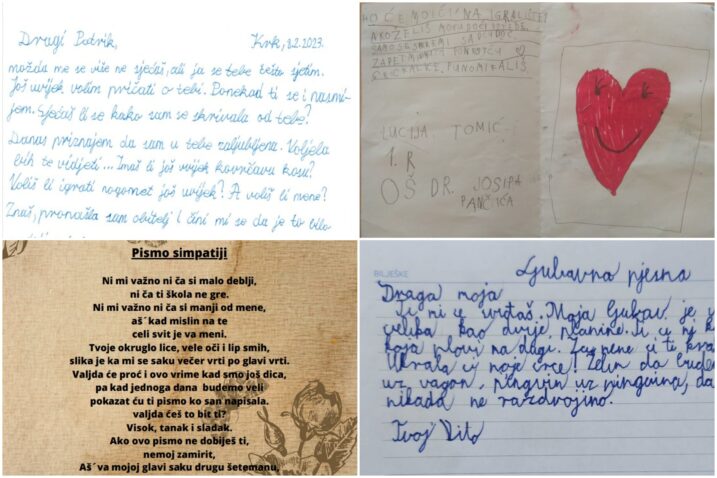 Dragi Patrik,
Krk, 8.2.2023.
možda me se više ne sjećaš, ali ja se tebe često sjetim.
Još uvijek volim pričati o tebi. Ponekad ti se i nasmi-
jem. Sjećaš li se kako sam se skrivala od tebe?
Danas priznajem da sam u tebe zaljubljena. Voljela
bih te vidjeti... Imaš li još uvijek kovrčavu kosu?
Voliš li igrati nogomet još uvijek? A voliš li mene?
Znaš, pronašla sam obitelj i čini mi se da je to bilo
HOĆEMO IĆI NA IGRALIŠTE?
AKO ŽELIŠ
SAMO SE SPREMI
LUCIJA TOMIĆ
1. R
OŠ DR. JOSIPA
PANČIĆA
Pismo simpatiji
Ni mi važno ni ča si malo deblji,
ni ča ti škola ne gre.
Ni mi važno ni ča si manji od mene,
aš´kad mislin na te
celi svit je va meni.
Tvoje okruglo lice, vele oči i lip smih,
slika je ka mi se saku večer vrti po glavi vrti.
Valjda će proć i ovo vrime kad smo još dica,
pa kad jednoga dana budemo veli
pokazat ću ti pismo ko san napisala.
valjda ćeš to bit ti?
Visok, tanak i sladak.
Ako ovo pismo ne dobiješ ti,
nemoj zamirit,
Aš´va mojoj glavi saku drugu šetemanu,
BILJEŠKE
Ljubavna pjesma
Draga moja
Ti mi se sviđaš. Moja ljubav je
velika kao dvije planine. Ti si
koja plovi na dagi. Za mene si ti
Ukrala si moje srce! Želim da
uz vagon, pingvin uz pingvina, da
nikada ne razdvojimo.
Tvoj Vito